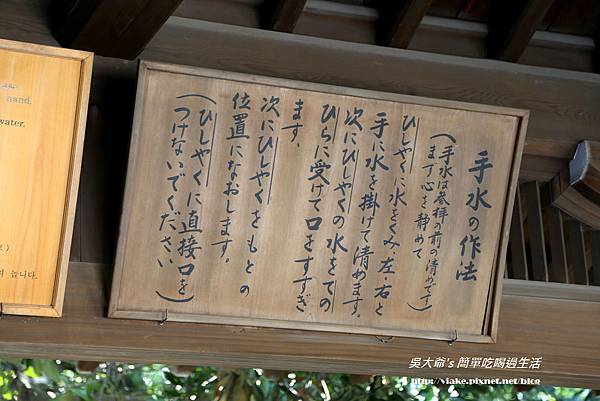 手水の作法
(手水は参拝の前の清めです)
まず心を静めて
ひしゃくに水をくみ、左・右と
手に水を掛けて清めます。
次にひしゃくの水をての
ひらに受けて口をすすぎ
ます。
次にひしゃくをもとの
位置になおします。
(ひしゃくに直接口を
つけないでください。)
hand.
water.
습니다.
吳大爺's 簡單吃喝過生活
http://vlake.pixnet.net/blog